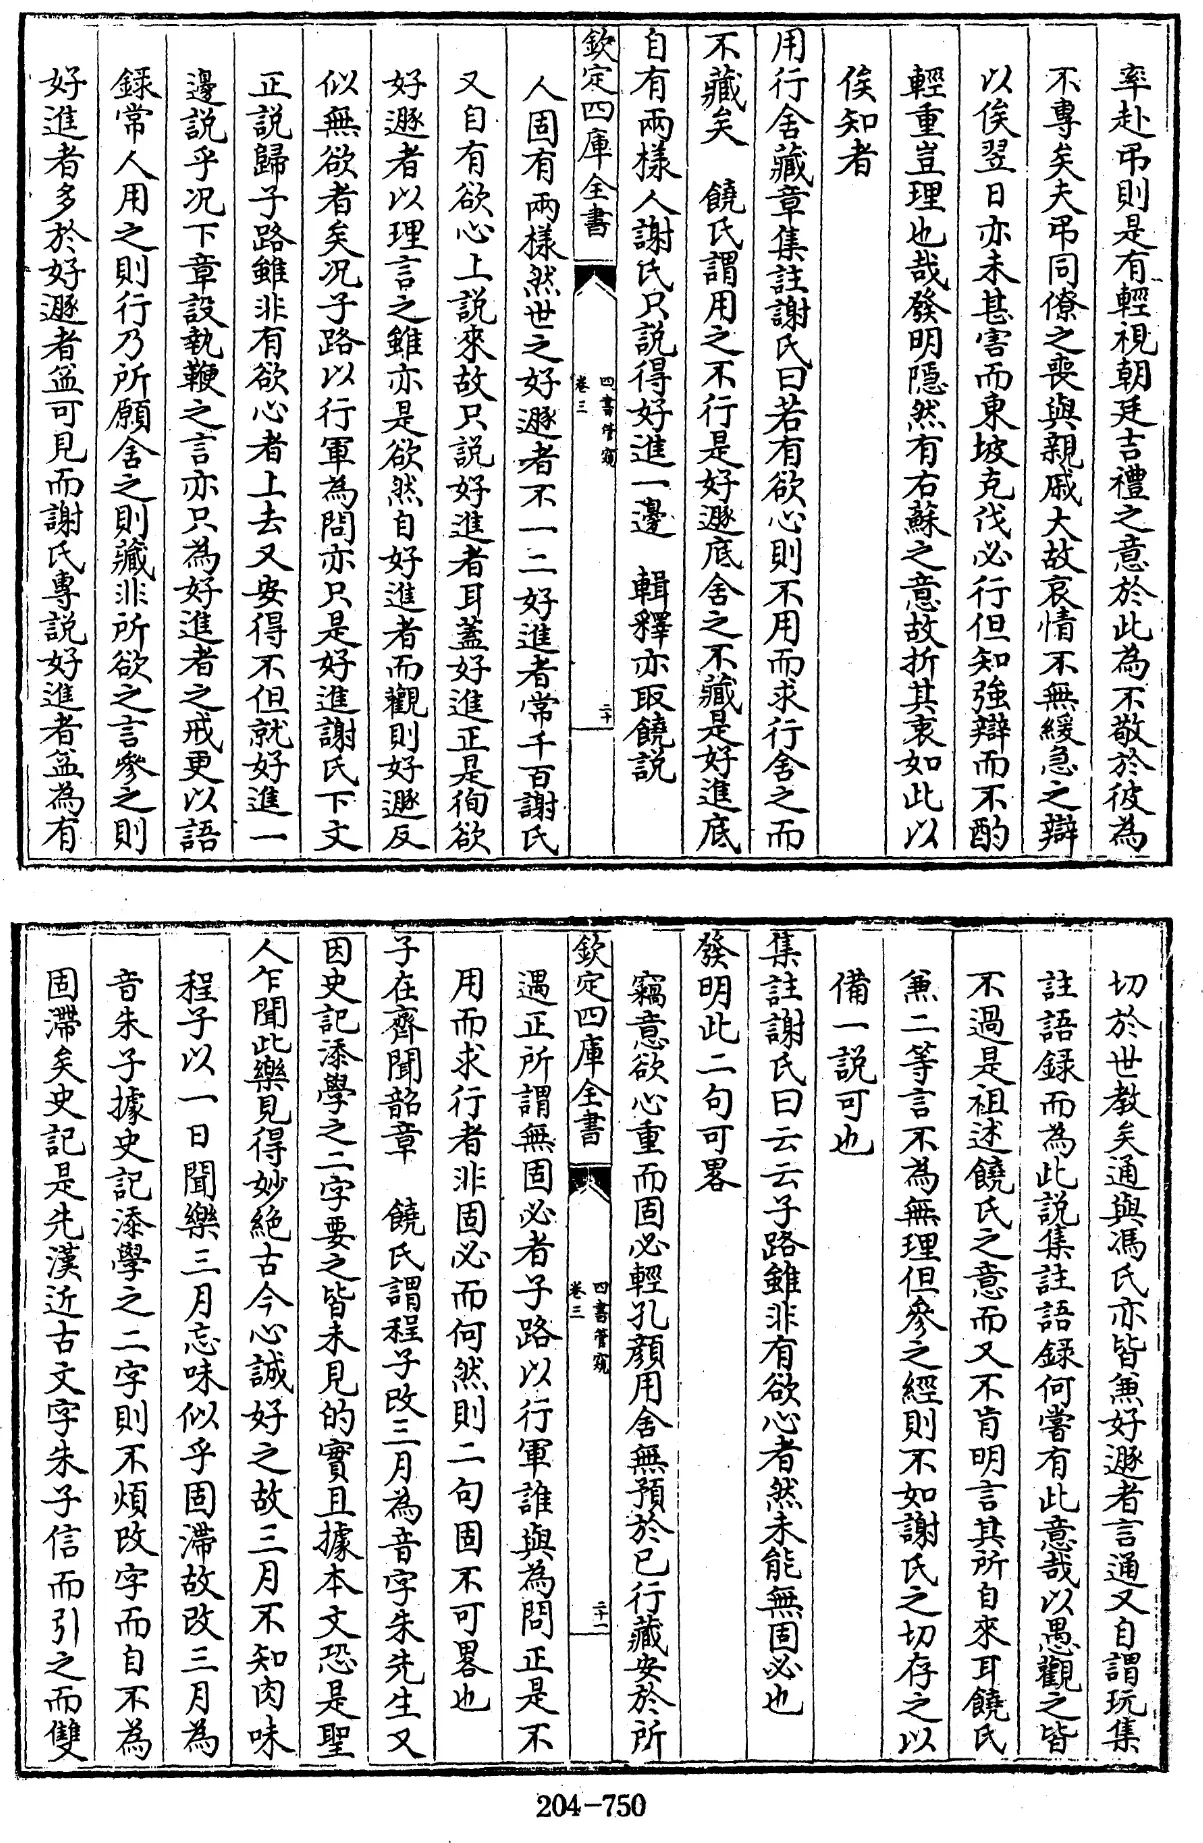 率赴弔則是有輕視朝廷吉禮之意於此為不敬於彼為
不專矣夫弔同僚之喪與親戚大故哀情不無緩急之辯
以俟翌日亦未甚害而東坡克伐必行但知強辯而不酌
輕重豈理也哉發明隱然有右蘇之意故折其衷如此以
俟知者
用行舍藏章集註謝氏曰若有欲心則不用而求行舍之而
不藏矣　饒氏謂用之不行是好遯底舍之不藏是好進底
自有兩樣人謝氏只說得好進一邊　輯釋亦取饒說
欽定四庫全書
四書管窺
卷三
二十
人固有兩樣然世之好遯者不一二好進者常千百謝氏
又自有欲心上說來故只說好進者耳蓋好進正是徇欲
好遯者以理言之雖亦是欲然自好進者而觀則好遯反
似無欲者矣況子路以行軍為問亦只是好進謝氏下文
正說歸子路雖非有欲心者上去又安得不但就好進一
邊說乎況下章設執鞭之言亦只為好進者之戒更以語
錄常人用之則行乃所願舍之則藏非所欲之言參之則
好進者多於好遯者益可見而謝氏專說好進者益為有
切於世教矣通與馮氏亦皆兼好遯者言通又自謂玩集
註語錄而為此說集註語錄何嘗有此意哉以愚觀之皆
不過是祖述饒氏之意而又不肯明言其所自來耳饒氏
兼二等言不為無理但參之經則不如謝氏之切存之以
備一說可也
集註謝氏曰云云子路雖非有欲心者然未能無固必也
發明此二句可畧
竊意欲心重而固必輕孔顏用舍無預於己行藏安於所
欽定四庫全書
四書管窺
卷三
二十一
遇正所謂無固必者子路以行軍誰與為問正是不
用而求行者非固必而何然則二句固不可畧也
子在齊聞韶章　饒氏謂程子改三月為音字朱先生又
因史記添學之二字要之皆未見的實且據本文恐是聖
人乍聞此樂見得妙絶古今心誠好之故三月不知肉味
程子以一日聞樂三月忘味似乎固滯故改三月為
音朱子據史記添學之二字則不煩改字而自不為
固滯矣史記是先漢近古文字朱子信而引之而雙
204-750